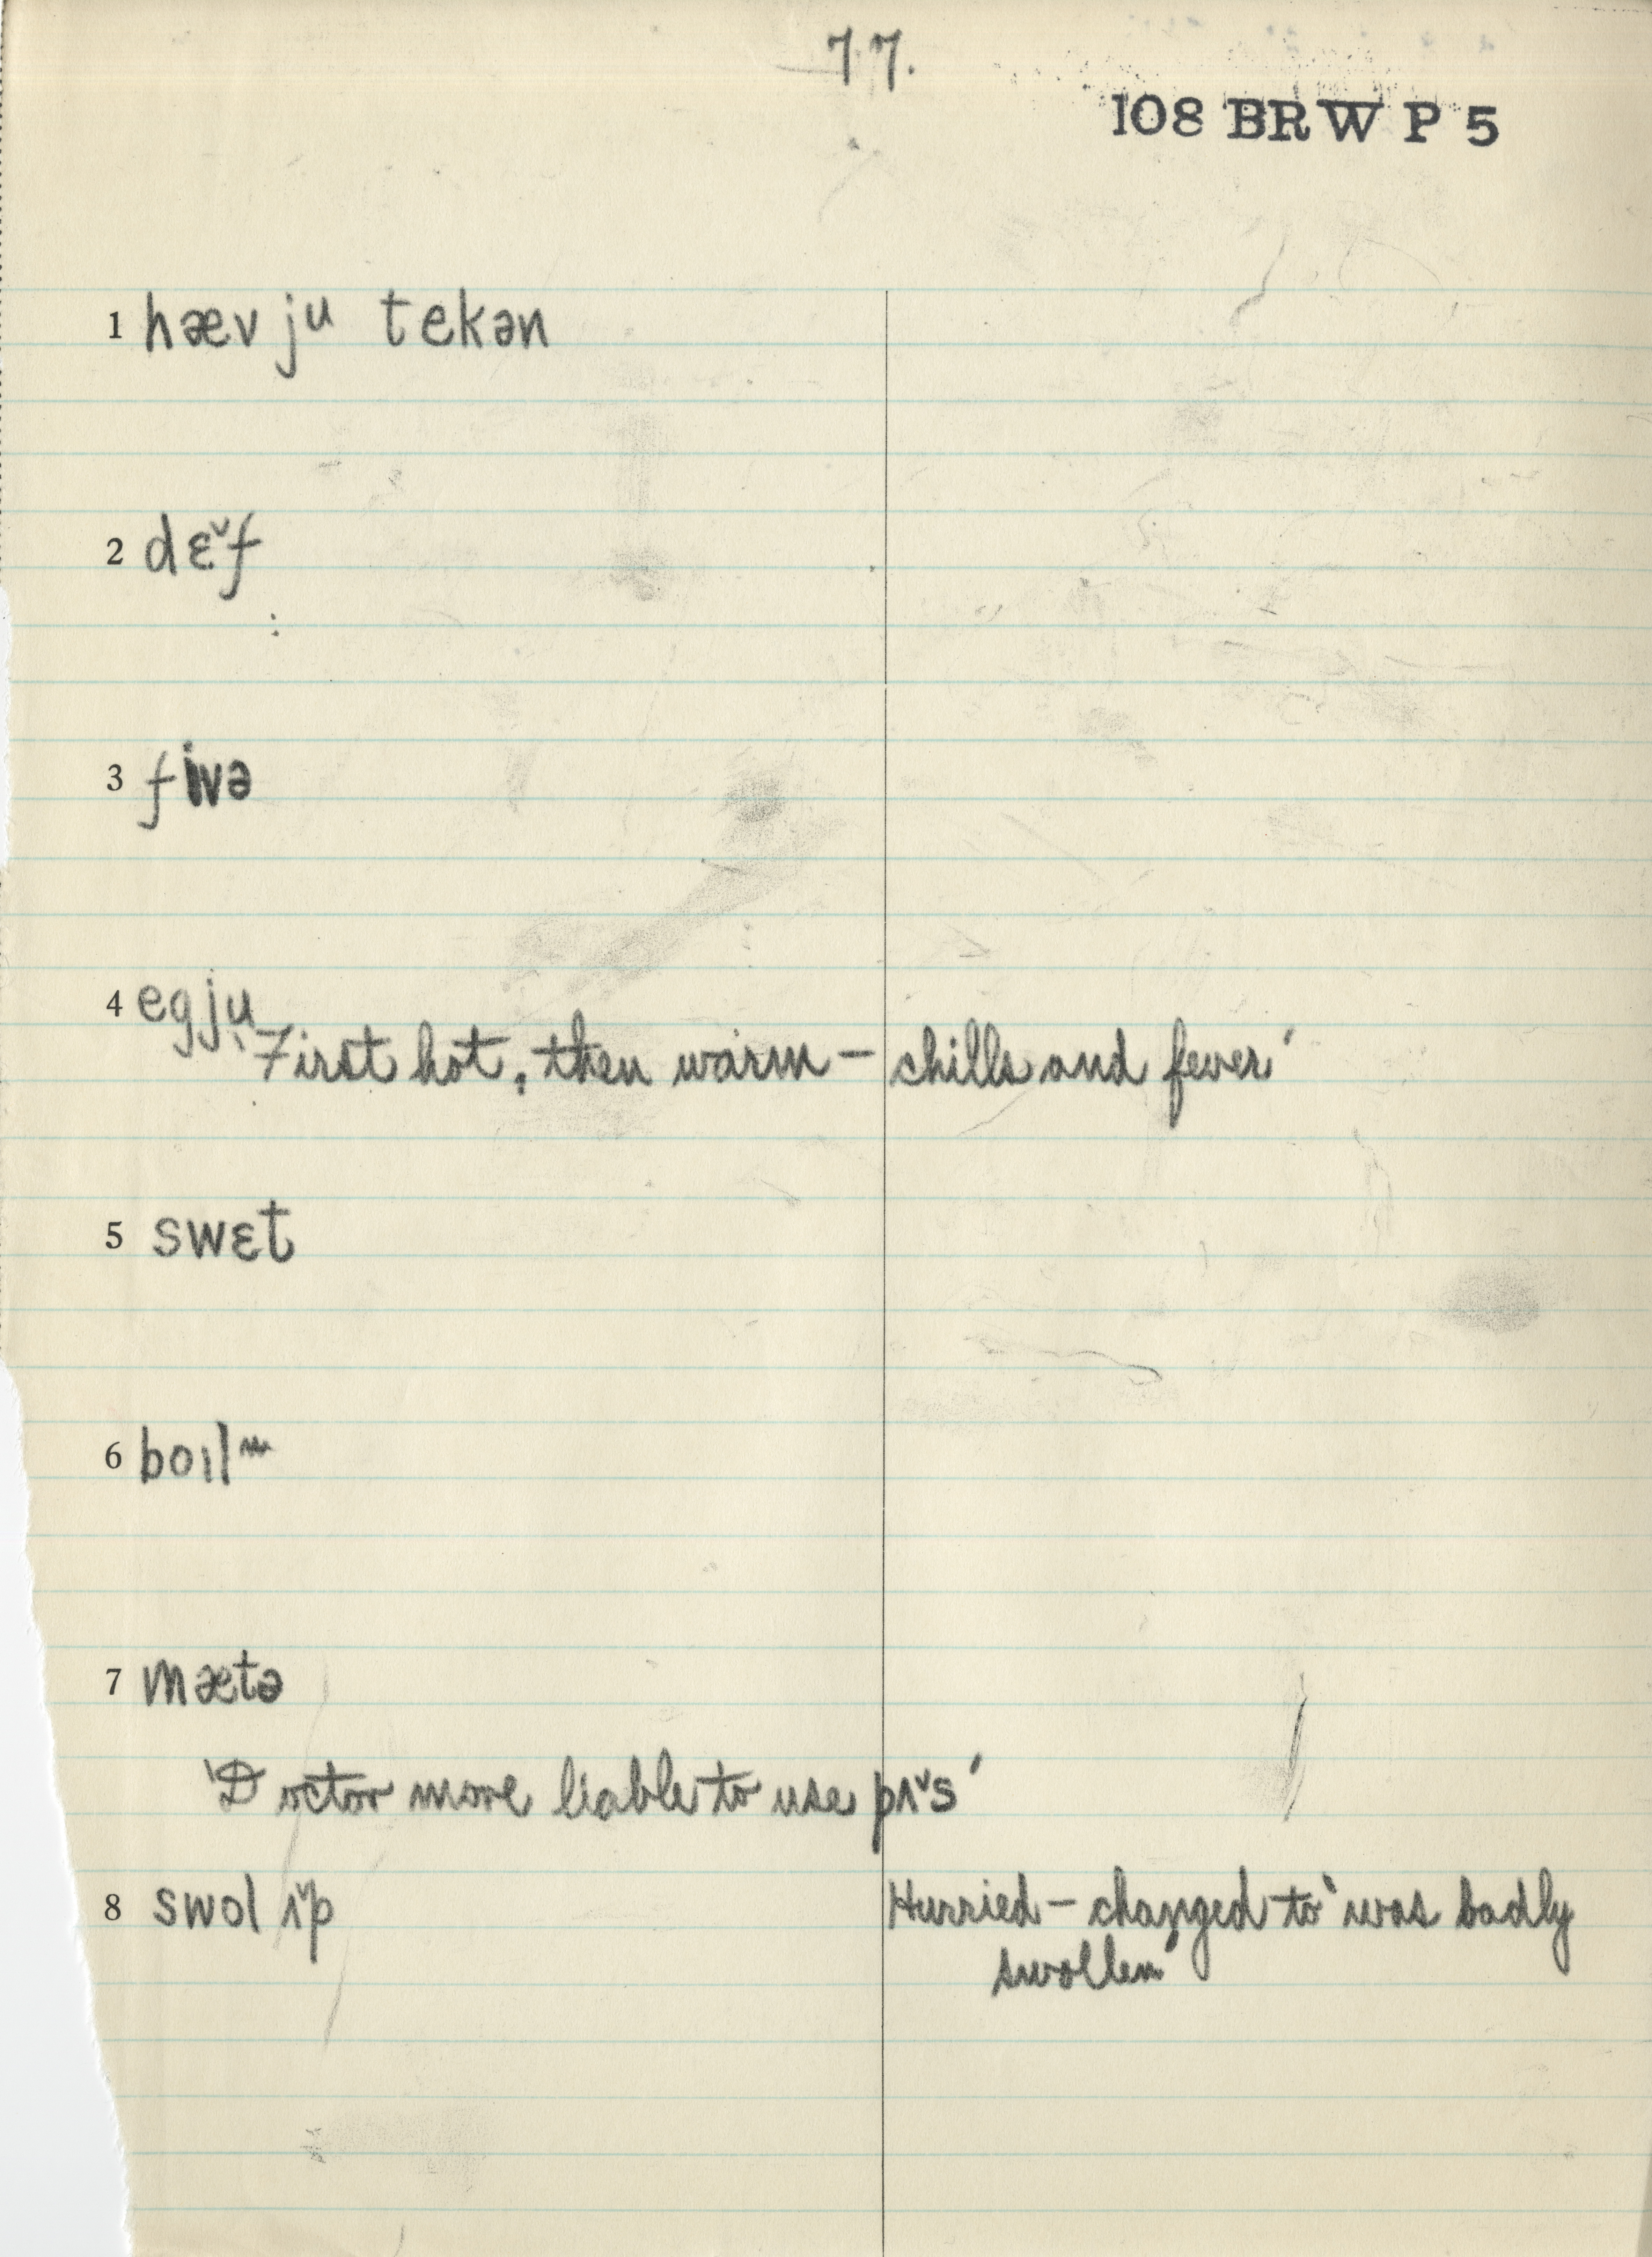 77.
108 BRW P 5
1 hæv ju tekən
2 dɛ˅f
3 fivə
4 egju
‘First hot, then warm – chills and fever’
5 swɛt
6 boɪl
7 mætə
‘Doctor more liable to use pʌ˅s’
8 swol ʌ˅p Hurried – changed to ‘was badly
swollen’